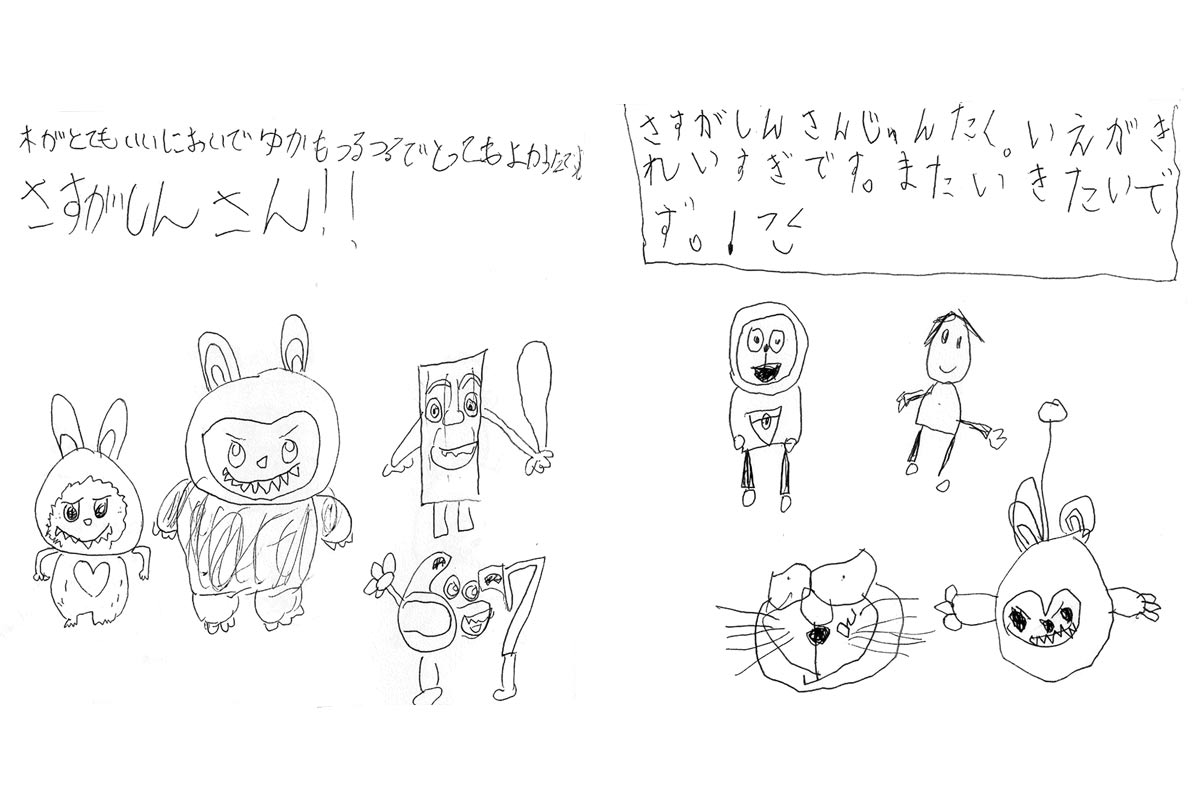 木がとてもいいにおいでゆかもつるつるでとってもよかったです
さすがしんさん!!
さすがしんさんじゅんたく。いえがき
れいすぎです。またいきたいで
ず。!
67